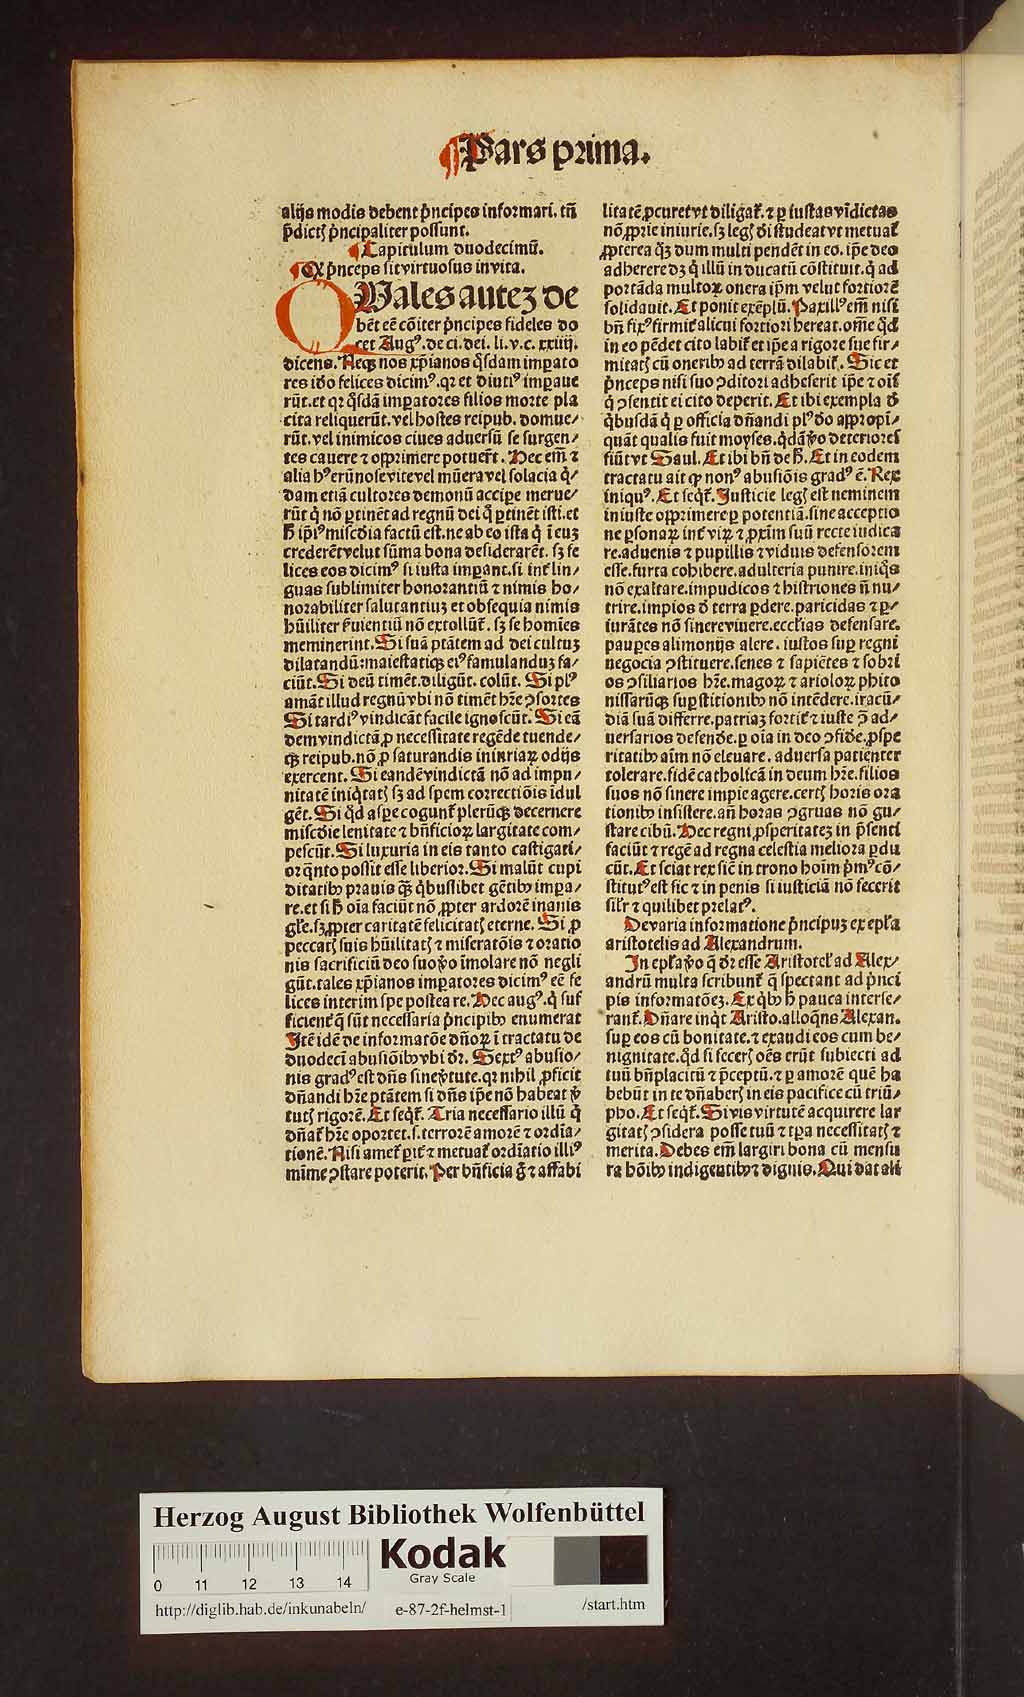 ¶Pars prima.
alijs modis debent p̃ncipes informari. tũ
p̃dictꝭ p̃ncipaliter possunt.
¶Capitulum duodecimũ.
¶Qꝫ p̃nceps sit virtuosus in vita.
QVales autez de
bẽt eẽ cõiter p̃ncipes fideles do
cet Augꝰ. de ci. dei. li. v. c. xxiiij.
dicens. Neqꝫ nos xp̃ianos q̃sdam impato
res iõo felices dicimꝰ. qꝛ et diutiꝰ impaue
rũt. et qꝛ q̃sdã impatores filios morte pla
cita reliquerũt. vel hostes reipub. domue/
rũt. vel inimicos ciues aduersũ se surgen/
tes cauere ⁊ opprimere potuer̃t. Hec em̃ ⁊
alia hꝰ erũnose vite vel mũera vel solacia q̃/
dam etiã cultores demonũ accipe merue/
rũt q̃ nõ ꝑtinẽt ad regnũ dei q̃ ꝑtinẽt isti. et
h̃ ip̃iꝰ misc̃dia factũ est. ne ab eo ista q̃ ĩ euꝫ
crederẽt velut sũma bona desiderarẽt. sꝫ fe
lices eos dicimꝰ si iusta impant. si int̃ lin/
guas sublimiter honorantiũ ⁊ nimis ho/
norabiliter salutantiuꝫ et obsequia nimis
hũiliter s̃uientiũ nõ extollũt̃. sꝫ se homĩes
meminerint. Si suã ptãtem ad dei cultuꝫ
dilatandũ: maiestatiqꝫ eiꝰ famulanduꝫ fa/
ciũt. Si deũ timẽt. diligũt. colũt. Si plꝰ
amãt illud regnũ vbi nõ timẽt hr̃e ꝯsortes
Si tardiꝰ vindicãt facile ignoscũt. Si eã
dem vindictã ꝓ necessitate regẽde tuende/
qꝫ reipub. nõ ꝓ saturandis iniuriaꝝ odijs
exercent. Si eandẽ vindictã nõ ad impu/
nitatẽ iniq̃tatꝭ sꝫ ad spem correctiõis ĩdul
gẽt. Si q̃d aspe cogunt̃ plerũqꝫ decernere
misc̃die lenitate ⁊ bñficioꝝ largitate com/
pescũt. Si luxuria in eis tanto castigati/
or q̃nto possit esse liberior. Si malũt cupi
ditatibꝫ prauis qꝫ q̃buslibet gẽtibꝫ impa/
re. et si h̃ oĩa faciũt nõ ꝓpter ardorẽ inanis
gl̃e. sꝫ ꝓpter caritatẽ felicitatꝭ eterne. Si ꝓ
peccatꝭ suis hũilitatꝭ ⁊ miseratõis ⁊ oratio
nis sacrificiũ deo suo ṽo ĩmolare nõ negli
gũt. tales xp̃ianos impatores dicimꝰ eẽ fe
lices interim spe postea re. Hec augꝰ. q̃ suf
ficient̃ q̃ sũt necessaria p̃ncipibꝫ enumerat
Itẽ idẽ de informatõe dñoꝝ ĩ tractatu de
duodecĩ abusiõibꝫ vbi dr̃. Sextꝰ abusio/
nis gradꝰ est dñs sine v̾tute. qꝛ nihil ꝓficit
dñandi hr̃e ptãtem si dñs ip̃e nõ habeat v̾
tutꝭ rigorẽ. Et seqt̃. Tria necessario illũ q̃
dñat̃ hr̃e oportet. s. terrorẽ amorẽ ⁊ ordĩa/
tionẽ. Nisi amet̃ ꝑit̃ ⁊ metuat̃ ordĩatio illiꝰ
mĩme ꝯstare poterit. Per bñficia g̃ ⁊ affabi
litatẽ ꝓcuret vt diligat̃. ⁊ ꝑ iustas vĩdictas
nõ ꝓprie iniurie. sꝫ legꝭ d̃i studeat vt metuat̃
ꝓpterea qꝫ dum multi pendẽt in eo. ip̃e deo
adherere dꝫ q̃ illũ in ducatũ cõstituit. q̃ ad
portãda multoꝝ onera ip̃m velut fortiorẽ
solidauit. Et ponit exẽplũ. Paxillꝰ em̃ nisi
bñ fixꝰ firmit̃ alicui fortiori hereat. om̃e q̃d
in eo pẽdet cito labit̃ et ip̃e a rigore sue fir/
mitatꝭ cũ oneribꝫ ad terrã dilabit̃. Sic et
p̃nceps nisi suo ꝯditori adheserit ip̃e ⁊ oĩs
q̃ ꝯsentit ei cito deperit. Et ibi exempla d̃
q̃busdã q̃ ꝑ officia dñandi plꝰ d̃o appropĩ/
quãt qualis fuit moyses. q̃dã ṽo deteriores
fiũt vt Saul. Et ibi bñ de h̃. Et in eodem
tractatu ait qꝫ nonꝰ abusiõis gradꝰ ẽ. Rex
iniquꝰ. Et seqt̃. Iusticie legꝭ est neminem
iniuste opprimere ꝑ potentiã. sine acceptio
ne ꝑsonaꝝ int̃ viꝝ ⁊ ꝓxim̃ suũ recte iudica
re. aduenis ⁊ pupillis ⁊ viduis defensorem
esse. furta cohibere. adulteria punire. iniq̃s
nõ exaltare. impudicos ⁊ histriones ñ nu/
trire. impios d̃ terra ꝑdere. paricidas ⁊ ꝑ/
iurãtes nõ sinere viuere. ecclias defensare.
paupes alimonijs alere. iustos sup regni
negocia ꝯstituere. senes ⁊ sapiẽtes ⁊ sobri
os ꝯsiliarios hr̃e. magoꝝ ⁊ arioloꝝ phito
nissarũqꝫ supstitionibꝫ nõ intẽdere. iracũ/
diã suã differre. patriaꝫ fortit̃ ⁊ iuste ꝯ̃ ad/
uersarios defend̾e. ꝑ oĩa in deo ꝯfid̾e. ꝓspe
ritatibꝫ aĩm nõ eleuare. aduersa patienter
tolerare. fidẽ catholicã in deum hr̃e. filios
suos nõ sinere impie agere. certꝭ horis ora
tionibꝫ insistere. añ horas ꝯgruas nõ gu/
stare cibũ. Hec regni ꝓsperitatez in p̃senti
faciũt ⁊ regẽ ad regna celestia meliora ꝑdu
cũt. Et sciat rex sic̃ in trono hoĩm p̃mꝰ cõ/
stitutꝰ est sic ⁊ in penis si iusticiã nõ fecerit
silr̃ ⁊ quilibet prelatꝰ.
De varia informatione p̃ncipuꝫ ex ep̃la
aristotelis ad Alexandrum.
In ep̃la ṽo q̃ dr̃ esse Aristotel̾ ad Alex/
andrũ multa scribunt̃ q̃ spectant ad p̃nci
pis informatõeꝫ. Ex q̃bꝫ h̃ pauca interse/
rant̃. Dñare inq̃t Aristo. alloq̃ns Alexan.
sup eos cũ bonitate. ⁊ exaudi eos cum be/
nignitate. q̃d si fecerꝭ oẽs erũt subiecti ad
tuũ bñplacitũ ⁊ p̃ceptũ. ⁊ ꝑ amorẽ quẽ ha
bebũt in te dñaberꝭ in eis pacifice cũ triũ/
pho. Et seqt̃. Si vis virtutẽ acquirere lar
gitatꝭ ꝯsidera posse tuũ ⁊ tp̃a necessitatꝭ ⁊
merita. Debes em̃ largiri bona cũ mensu
ra bõibꝫ indigentibꝫ ⁊ dignis. Qui dat ali
Herzog August Bibliothek Wolfenbüttel
0 11 12 13 14
Kodak
Gray Scale
http://diglib.hab.de/inkunabeln/ e-87-2f-helmst-1 /start.htm